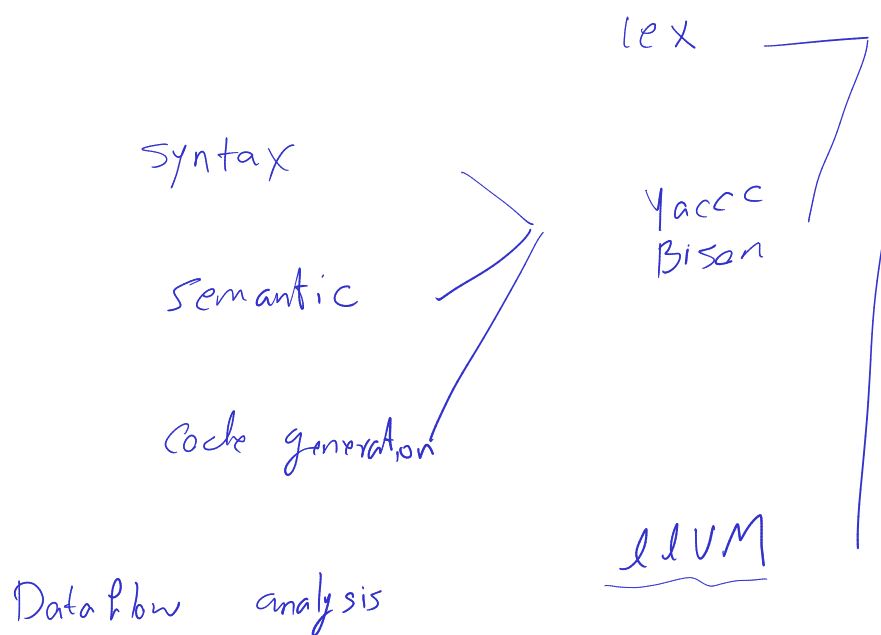 lex
syntax
Yaccc
Bison
semantic
Code generation
llVM
Dataflow analysis